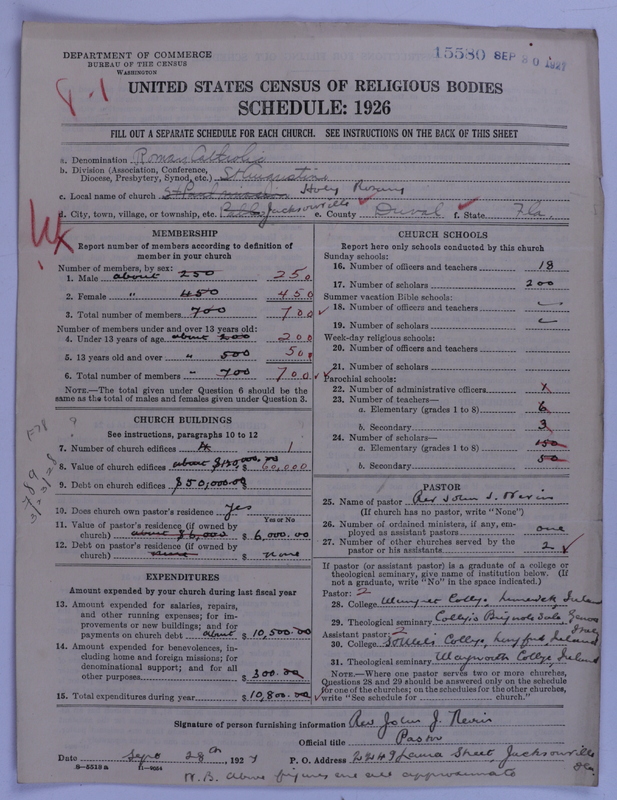 DEPARTMENT OF COMMERCE
BUREAU OF THE CENSUS
WASHINGTON
15580 SEP 30 1927
8-1
UNITED STATES CENSUS OF RELIGIOUS BODIES
SCHEDULE: 1926
FILL OUT A SEPARATE SCHEDULE FOR EACH CHURCH. SEE INSTRUCTIONS ON THE BACK OF THIS SHEET
a. Denomination Roman Catholic
b. Division (Association, Conference,
Diocese, Presbytery, Synod, etc.) St Augustine
c. Local name of church Holy Rosary
d. City, town, village, or township, etc. Jacksonville e. County Duval f. State Fla.
MEMBERSHIP
Report number of members according to definition of
member in your church
Number of members, by sex:
1. Male about 250 250
2. Female " 450 450
3. Total number of members 700 700
Number of members under and over 13 years old:
4. Under 13 years of age about 200 200
5. 13 years old and over " 500 500
6. Total number of members " 700 700
NOTE.—The total given under Question 6 should be the
same as the total of males and females given under Question 3.
CHURCH BUILDINGS
See instructions, paragraphs 10 to 12
7. Number of church edifices 1
8. Value of church edifices about $ 60,000
9. Debt on church edifices $50,000.00
10. Does church own pastor's residence? yes
Yes or No
11. Value of pastor's residence (if owned by
church) about $6,000 $ 6,000.00
12. Debt on pastor's residence (if owned by
church) none $ none
EXPENDITURES
Amount expended by your church during last fiscal year
13. Amount expended for salaries, repairs,
and other running expenses; for im-
provements or new buildings; and for
payments on church debt about $ 10,500.00
14. Amount expended for benevolences, in-
cluding home and foreign missions; for
denominational support; and for all
other purposes $ 300.00
15. Total expenditures during year $ 10,800.00
CHURCH SCHOOLS
Report here only schools conducted by this church
Sunday schools:
16. Number of officers and teachers 18
17. Number of scholars 200
Summer vacation Bible schools:
18. Number of officers and teachers
19. Number of scholars
Week-day religious schools:
20. Number of officers and teachers
21. Number of scholars
Parochial schools:
22. Number of administrative officers x
23. Number of teachers—
a. Elementary (grades 1 to 8) 6
b. Secondary 3
24. Number of scholars—
a. Elementary (grades 1 to 8) 150
b. Secondary 50
PASTOR
25. Name of pastor Rev John J. Nevin
(If church has no pastor, write "None")
26. Number of ordained ministers, if any, em-
ployed as assistant pastors one
27. Number of other churches served by the
pastor or his assistants 2
If pastor (or assistant pastor) is a graduate of a college or
theological seminary, give name of institution below. (If
not a graduate, write "No" in the space indicated.)
Pastor: 2
28. College Mungret College, Limerick, Ireland
29. Theological seminary Brignole Sale, Genoa
Italy
Assistant pastor: 2
30. College College, Ireland
31. Theological seminary College Ireland
NOTE.—Where one pastor serves two or more churches,
Questions 28 and 29 should be answered only on the schedule
for one of the churches; on the schedules for the other churches,
write "See schedule for church."
Signature of person furnishing information Rev John J. Nevin
Official title Pastor
Date Sept 28th, 1927 P. O. Address Street, Jacksonville
Fla.
8-5518a 11-9064
N.B. above figures are all approximate